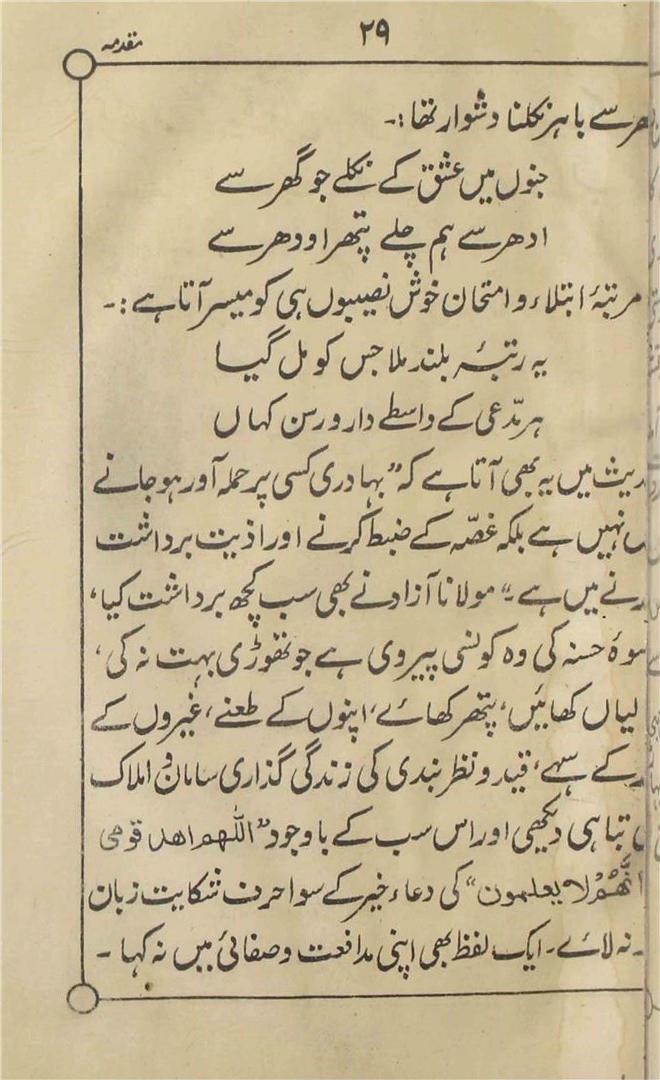 ۲۹
مقدمہ
گھر سے باہر نکلنا دشوار تھا :۔
جنوں میں عشق کے نکلے جو گھر سے
ادھر سے ہم چلے پتھر اودھر سے
مرتبۂ ابتلاء و امتحان خوش نصیبوں ہی کو میسر آتا ہے :۔
یہ رتبۂ بلند ملا جس کو مل گیا
ہر مدّعی کے واسطے دار و رسن کہاں
حدیث میں یہ بھی آتا ہے کہ “بہادری کسی پر حملہ آور ہو جانے
نہیں ہے بلکہ غصّہ کے ضبط کرنے اور اذیت برداشت
کرنے میں ہے۔” مولانا آزاد نے بھی سب کچھ برداشت کیا،
اسوۂ حسنہ کی وہ کونسی پیروی ہے جو تھوڑی بہت نہ کی،
گالیاں کھائیں، پتھر کھائے، اپنوں کے طعنے، غیروں کے
کے سہے، قید و نظر بندی کی زندگی گذاری سامان و املاک
کی تباہی دیکھی اور اس سب کے باوجود “اللّٰھم اھد قومی
انَّھُمْ لا یعلمون” کی دعاء خیر کے سوا حرف شکایت زبان
نہ لائے۔ ایک لفظ بھی اپنی مدافعت و صفائی میں نہ کہا ۔